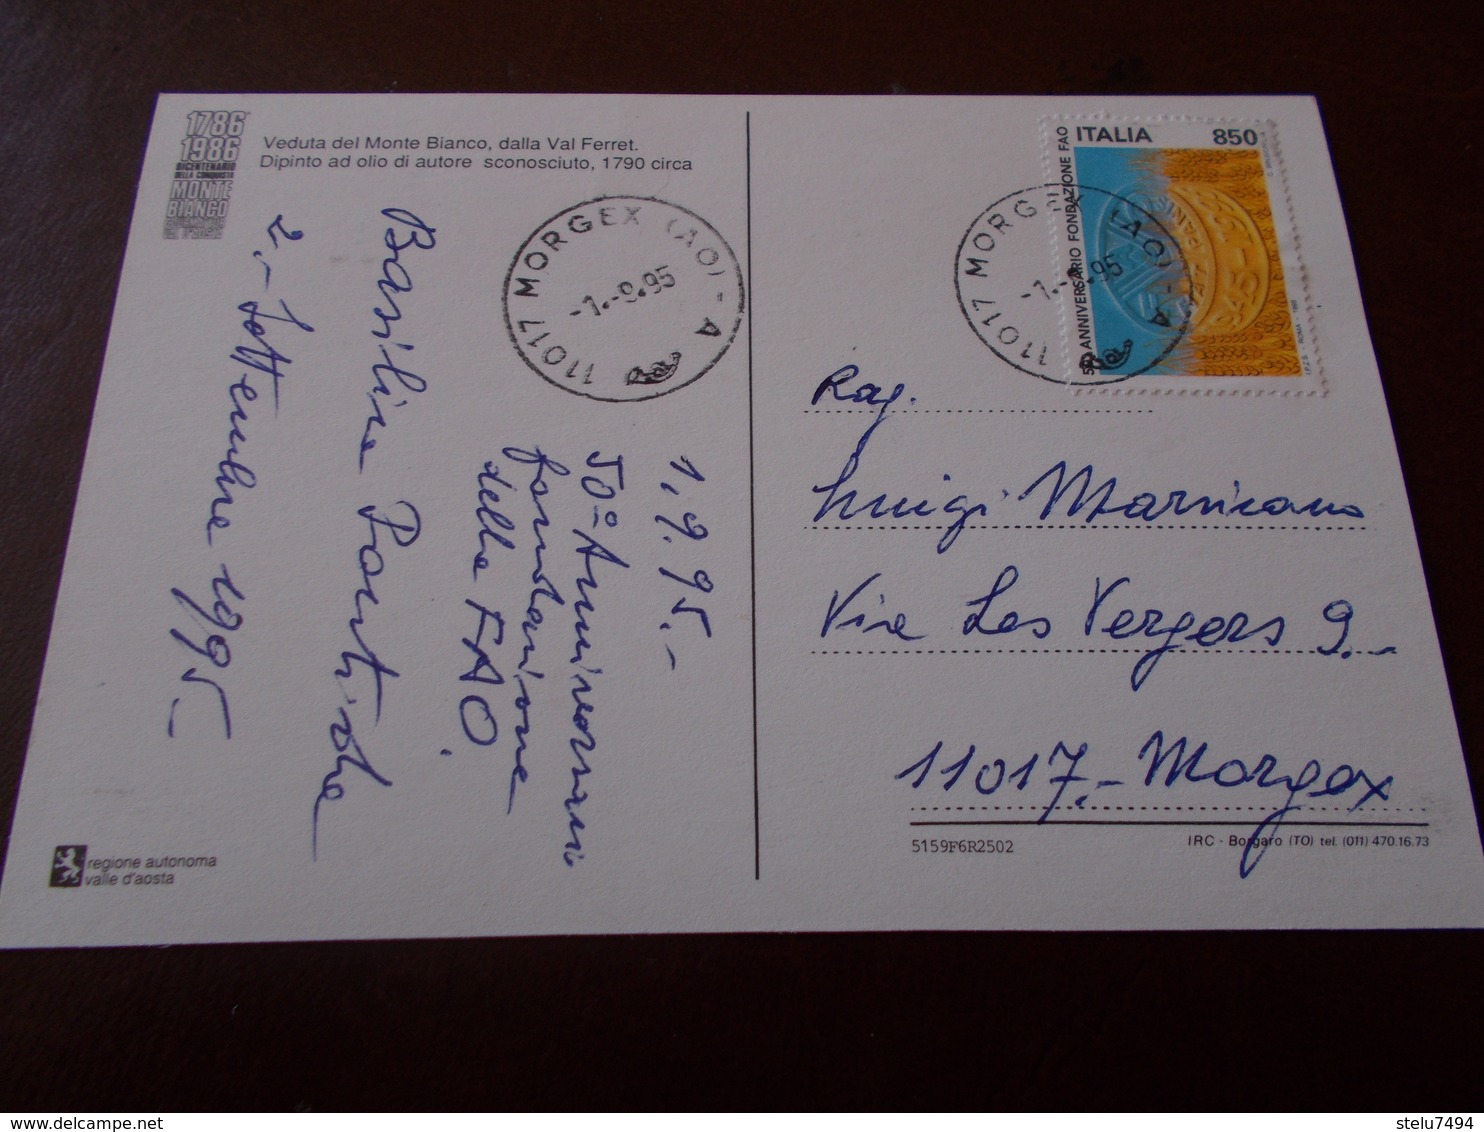 1786
1986
BICENTENARIO
DELLA CONQUISTA
MONTE
BIANCO
Veduta del Monte Bianco, dalla Val Ferret.
Dipinto ad olio di autore sconosciuto, 1790 circa
11017 MORGEX (AO) - A
-1.-9.95
1.9.95.-
50° Anniversario
fondazione
della FAO.
2.- Settembre 1995-
regione autonoma
valle d'aosta
ITALIA 850
50° ANNIVERSARIO FONDAZIONE FAO
I.P.Z.S. - ROMA -
11017 MORGEX (AO) - A
-1.-9.95
Rag.
Luigi Marsicano
Via Les Vergers 9.-
11017.- Morgex
5159F6R2502
IRC - Borgaro (TO) tel. (011) 470.16.73
stelu7494